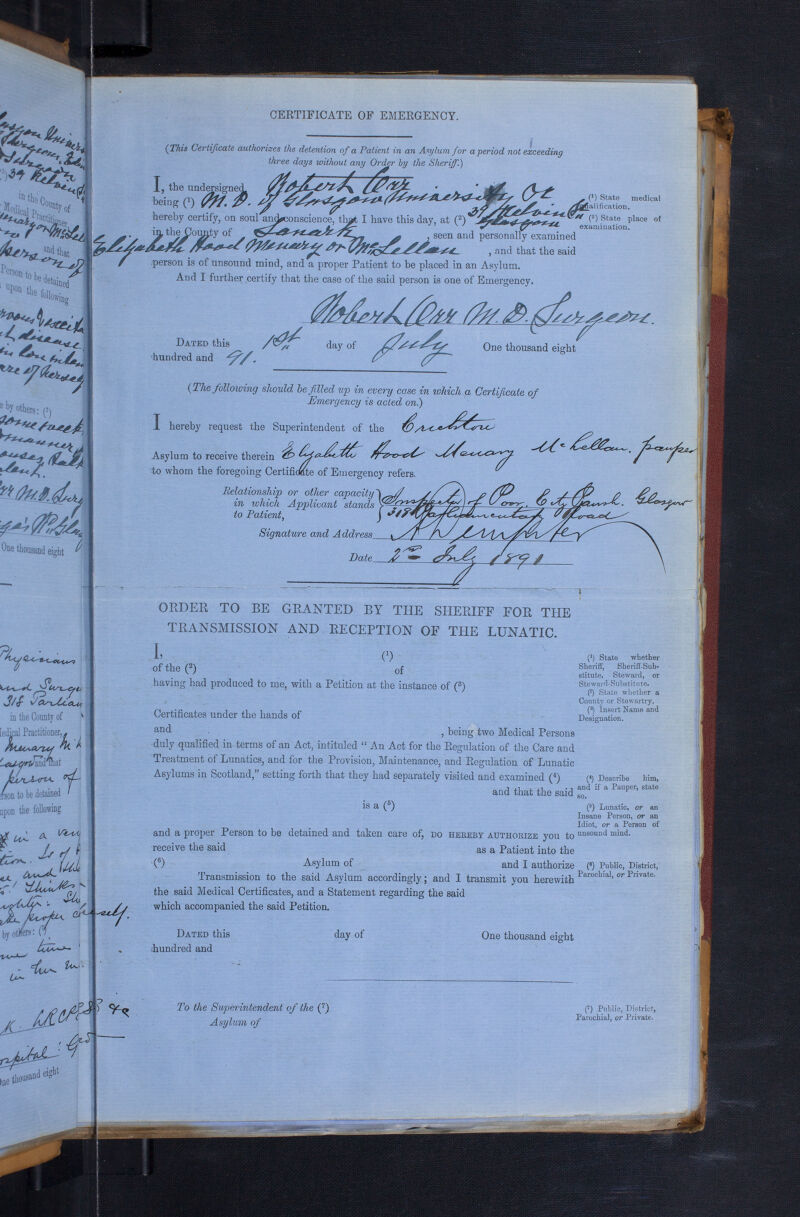 CERTIFICATE OF EMERGENCY.
(This Certificate authorizes the detention of a Patient in an Asylum for a period not exceeding
three days without any Order by the Sheriff.)
I, the undersigned Robert Orr
being (¹) M.D. of Glasgow University
hereby certify, on soul and conscience, that I have this day, at (²) 39 Kelvin St Glasgow
in the County of Lanark, seen and personally examined
Elizabeth Hood Menary or McLellan, and that the said
person is of unsound mind, and a proper Patient to be placed in an Asylum.
And I further certify that the case of the said person is one of Emergency.
(¹) State medical
qualification.
(²) State place of
examination.
Robert Orr M.D. Surgeon.
DATED this 1st day of July One thousand eight
hundred and 91.
(The following should be filled up in every case in which a Certificate of
Emergency is acted on.)
I hereby request the Superintendent of the Crichton
Asylum to receive therein Elizabeth Hood Menary McLellan. pauper
to whom the foregoing Certificate of Emergency refers.
Relationship or other capacity
in which Applicant stands
to Patient,
Inspector of Poor. City Parish. Glasgow
318 Parliamentary Road
Signature and Address
Date 2nd July 1891
ORDER TO BE GRANTED BY THE SHERIFF FOR THE
TRANSMISSION AND RECEPTION OF THE LUNATIC.
I, (¹)
of the (²) of
having had produced to me, with a Petition at the instance of (³)
Certificates under the hands of
and , being two Medical Persons
duly qualified in terms of an Act, intituled "An Act for the Regulation of the Care and
Treatment of Lunatics, and for the Provision, Maintenance, and Regulation of Lunatic
Asylums in Scotland," setting forth that they had separately visited and examined (⁴)
and that the said
is a (⁵)
and a proper Person to be detained and taken care of, DO HEREBY AUTHORIZE you to
receive the said as a Patient into the
(⁶) Asylum of and I authorize
Transmission to the said Asylum accordingly; and I transmit you herewith
the said Medical Certificates, and a Statement regarding the said
which accompanied the said Petition.
(¹) State whether
Sheriff, Sheriff-Sub-
stitute, Steward, or
Steward-Substitute.
(²) State whether a
County or Stewartry.
(³) Insert Name and
Designation.
(⁴) Describe him,
and if a Pauper, state
so.
(⁵) Lunatic, or an
Insane Person, or an
Idiot, or a Person of
unsound mind.
(⁶) Public, District,
Parochial, or Private.
DATED this day of One thousand eight
hundred and
To the Superintendent of the (⁷)
Asylum of
(⁷) Public, District,
Parochial, or Private.